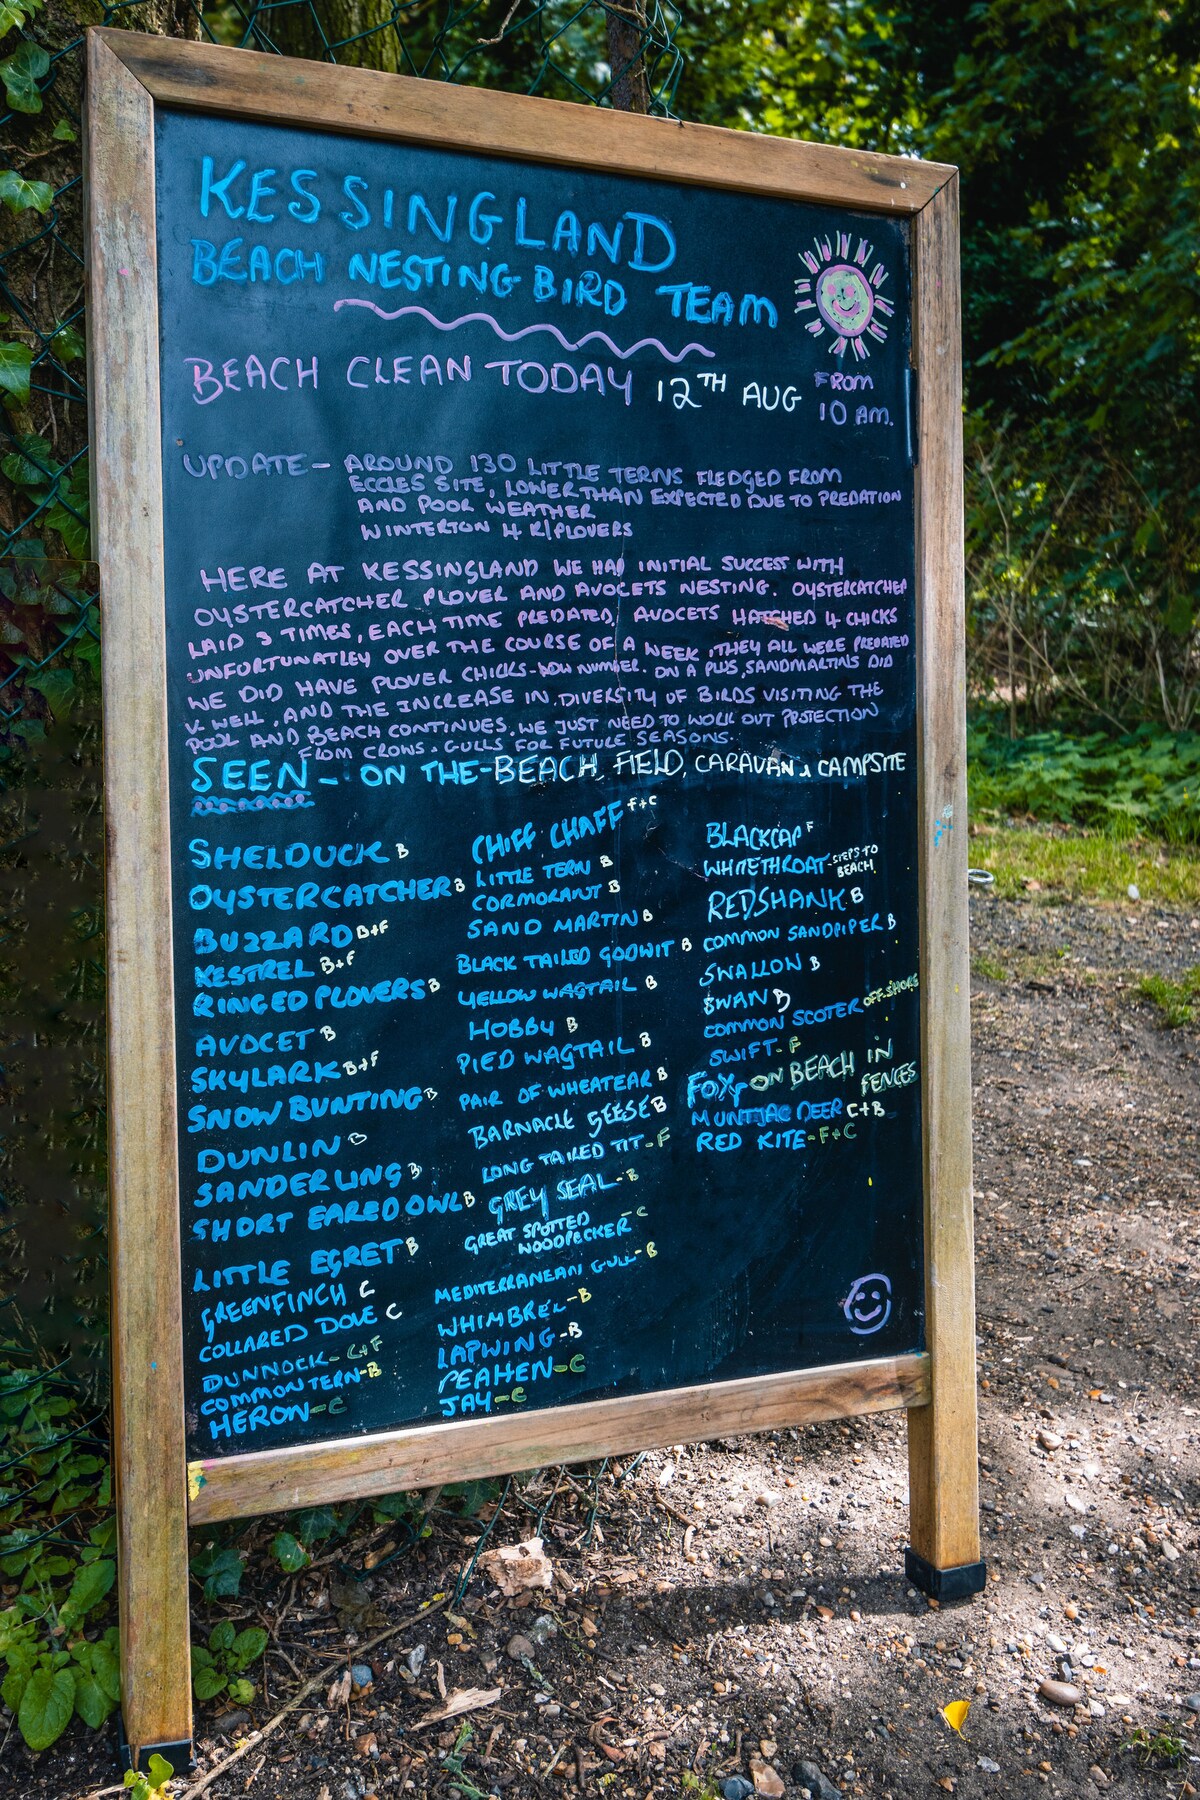 KESSINGLAND
BEACH NESTING BIRD TEAM
BEACH CLEAN TODAY 12TH AUG FROM
10 AM.
UPDATE - AROUND 130 LITTLE TERNS FLEDGED FROM
ECCLES SITE, LOWER THAN EXPECTED DUE TO PREDATION
AND POOR WEATHER
WINTERTON 4 R/PLOVERS
HERE AT KESSINGLAND WE HAD INITIAL SUCCESS WITH
OYSTERCATCHER PLOVER AND AVOCETS NESTING. OYSTERCATCHER
LAID 3 TIMES, EACH TIME PREDATED, AVOCETS HATCHED 4 CHICKS
UNFORTUNATLEY OVER THE COURSE OF A WEEK, THEY ALL WERE PREDATED
WE DID HAVE PLOVER CHICKS - LOW NUMBER. ON A PLUS, SANDMARTINS DID
V. WELL, AND THE INCREASE IN DIVERSITY OF BIRDS VISITING THE
POOL AND BEACH CONTINUES. WE JUST NEED TO WORK OUT PROTECTION
FROM CROWS & GULLS FOR FUTURE SEASONS.
SEEN - ON THE - BEACH, FIELD, CARAVAN & CAMPSITE
SHELDUCK B
OYSTERCATCHER B
BUZZARD B+F
KESTREL B+F
RINGED PLOVERS B
AVOCET B
SKYLARK B+F
SNOW BUNTING B
DUNLIN B
SANDERLING B
SHORT EARED OWL B
LITTLE EGRET B
GREENFINCH C
COLLARED DOVE C
DUNNOCK - C+F
COMMON TERN - B
HERON - C
CHIFF CHAFF F+C
LITTLE TERN B
CORMORANT B
SAND MARTIN B
BLACK TAILED GODWIT B
YELLOW WAGTAIL B
HOBBY B
PIED WAGTAIL B
PAIR OF WHEATEAR B
BARNACLE GEESE B
LONG TAILED TIT - F
GREY SEAL - B
GREAT SPOTTED
WOODPECKER - C
MEDITERRANEAN GULL - B
WHIMBREL - B
LAPWING - B
PEAHEN - C
JAY - C
BLACKCAP F
WHITETHROAT - STEPS TO
BEACH
REDSHANK B
COMMON SANDPIPER B
SWALLOW B
SWAN B
COMMON SCOTER OFF-SHORE
SWIFT - F
FOX, ON BEACH IN
FENCES
MUNTJAC DEER C+B
RED KITE - F+C